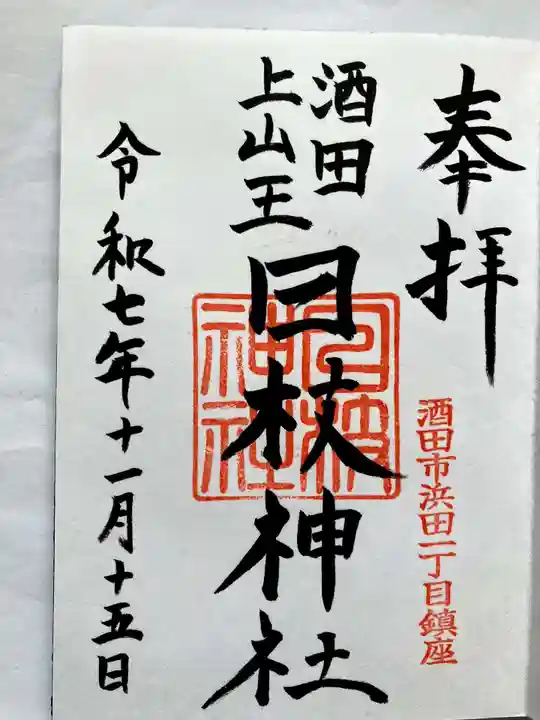 奉拝
酒田市浜田一丁目鎮座
酒田
上山王
日枝神社
日枝
神社
令和七年十一月十五日